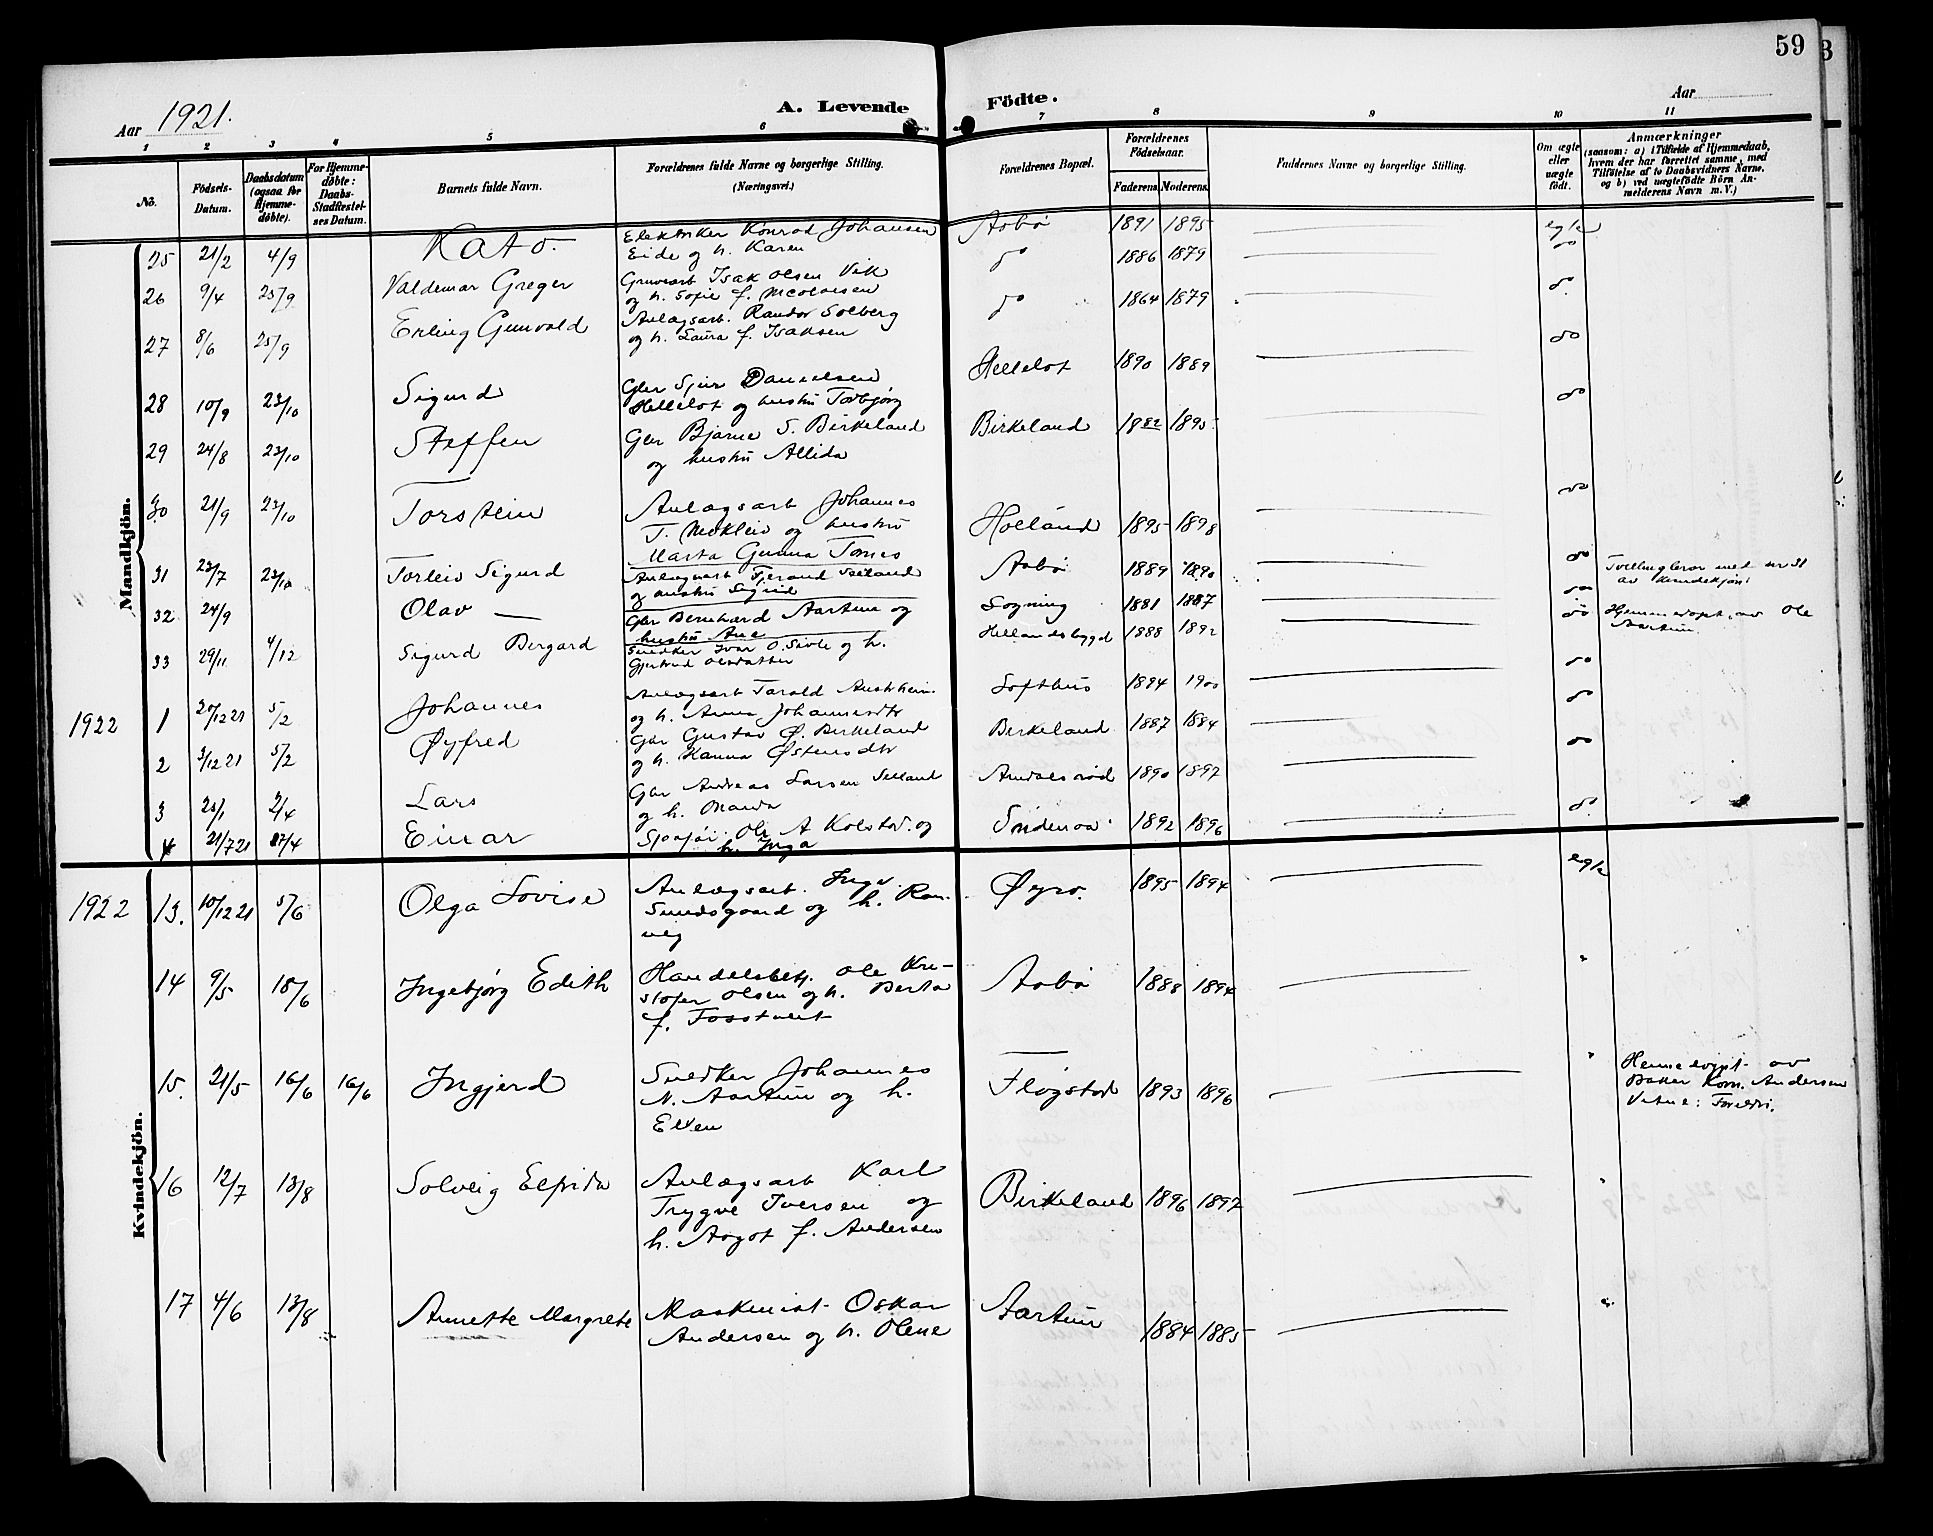 59
Aar 1921.
A. Levende Födte.
Aar
1 2 3 4 5 6 7 8 9 10 11
No.
Födsels-Datum.
Daabsdatum (ogsaa for Hjemme-döbte).
For Hjemme-döbte: Daabs-Stadfæstel-ses Datum.
Barnets fulde Navn.
Forældrenes fulde Navne og borgerlige Stilling. (Næringsvei.)
Forældrenes Bopæl.
Forældrenes Födselsaar.
Faderens. Moderens.
Faddernes Navne og borgerlige Stilling.
Om ægte eller uægte födt.
Anmærkninger
(saasom: a) i Tilfælde af Hjemmedaab, hvem der har forrettet samme, med Tilföielse af to Daabsvidners Navne, og b) ved uægtefödte Börn Anmelderens Navn m. V.)
Mandkjön.
25 21/2 4/9 Kato. Elektriker Konrad Johansen Aabø 1891 1895 egte
Eide og h. Karen
26 9/4 25/9 Valdemar Greger Gruvearb Isak Olsen Vik do 1886 1879 do
og h. Sofie f.
27 8/6 25/9 Erling Gunvald Anlægsarb. Randor Solberg do 1864 1879 do
og h. Laura f. Isaksen
28 10/9 23/10 Sigurd Gbr Sjur Danielsen Helleløt 1890 1889 do
Helleløt og hustru Torbjørg
29 24/8 23/10 Steffen Gbr Bjarne S. Birkeland Birkeland 1882 1895 do
og hustru Allida
30 21/9 23/10 Torstein Anlægsarb Johannes Holland 1895 1898 do
T. Mokleiv og hustru
Marta Gunna Tones
31 23/7 23/10 Torleiv Sigurd Anlægsarb Seland Aabø 1889 1890 do Tvillingbror med nr 31
og hustru Sigrid av kvindekjøn.
32 24/9 Olav Gbr Bernhard Aartun og Sogning 1881 1887 do Hjemmedøpt av Ole
hustru Ane Aartun.
33 29/11 4/12 Sigurd Bergard Snedker Ivar O. Sivle og h. Hellandsbygd 1888 1892 do
Gjertrud Olsdatter
1922 1 20/12 21 5/2 Johannes Anlægsarb Tarald Austrheim Lofthus 1894 1900 do
og h. Anna Johannesdtr
2 3/12 21 5/2 Øyfred Gbr Gustav Ø. Birkeland Birkeland 1887 1884 do
og h. Hanna Østensdtr
3 25/1 2/4 Lars Gbr Andreas Larsen Selland 1890 1897 do
og h.
4 21/7 21 17/4 Einar Ole A Kolstø og Søndenaa 1892 1896 do.
h. Inga
Kvindekjön.
1922 13. 10/12 21 5/6 Olga Lovise Anlægsarb. Inge Øyro. 1895 1894 egte
Sundsgaard og h. Ran-
veig
14 9/5 18/6 Ingebjørg Edith Handelsbetj. Ole Kri- Aabø 1888 1894 "
stofer Olsen og h. Berta
f. Tosstveit
15. 21/5 16/6 16/6 Ingjerd Snedker Johannes Fløgstad 1893 1896 " Hemedøpt av
N. Aartun og h. Baker Korn. Andersen
Ellen Vitne: Foreldr.
16 12/7 13/8 Solveig Elfrida Anlægsarb Karl Birkeland 1896 1897 "
Trygve Iversen og
h. Aagot f. Andersen
17 4/6 13/8 Annette Margrete Maskinist Oskar Aartun 1884 1885 "
Andersen og h. Olene